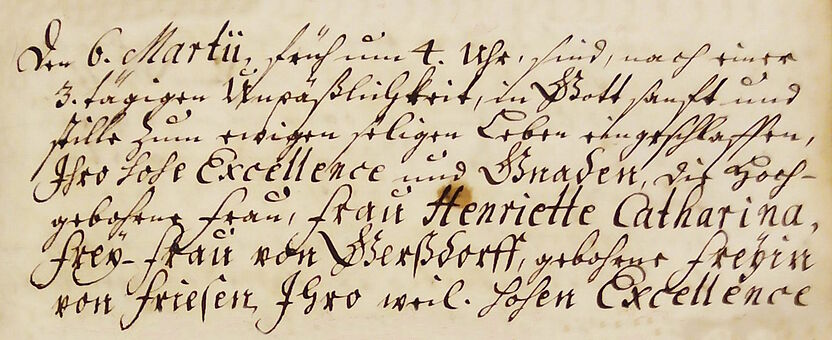 Den 6. Martii, früh um 4. Uhr, sind, nach einer
3. tägigen Unpäßlichkeit, in Gott sanft und
stille zum ewigen seligen Leben eingeschlaffen,
Ihro Hohe Excellence und Gnaden, die Hoch-
gebohrne Frau, Frau Henriette Catharina,
Frey-Frau von Gerßdorff, gebohrne Freyin
von Friesen, Ihro weil. Hohen Excellence